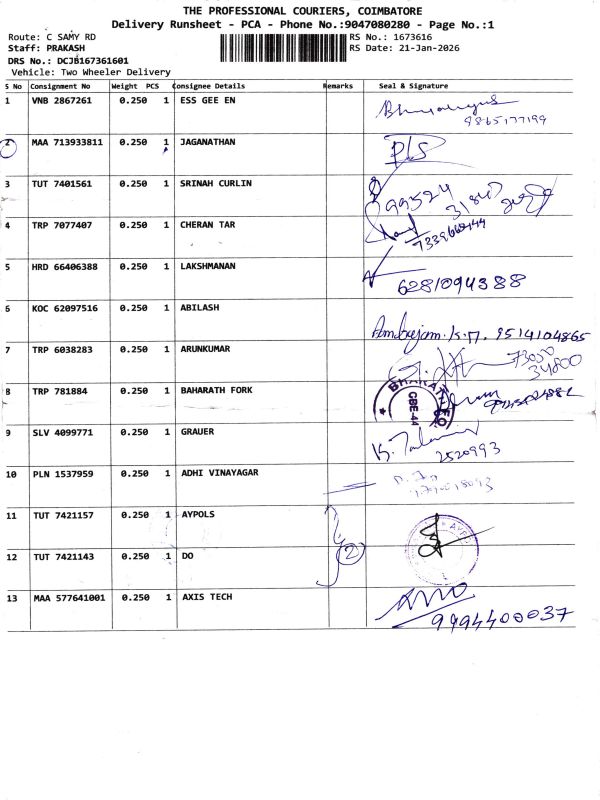 THE PROFESSIONAL COURIERS, COIMBATORE
Delivery Runsheet - PCA - Phone No.:9047080280 - Page No.:1
Route: C SAMY RD
RS No.: 1673616
Staff: PRAKASH
RS Date: 21-Jan-2026
DRS No.: DCJB167361601
Vehicle: Two Wheeler Delivery
S No Consignment No Weight PCS Consignee Details Remarks Seal & Signature
1 VNB 2867261 0.250 1 ESS GEE EN
9865177199
2 MAA 713933811 0.250 1 JAGANATHAN
3 TUT 7401561 0.250 1 SRINAH CURLIN
99524
31847
4 TRP 7077407 0.250 1 CHERAN TAR
5 HRD 66406388 0.250 1 LAKSHMANAN
6281094388
6 KOC 62097516 0.250 1 ABILASH
9514104865
7 TRP 6038283 0.250 1 ARUNKUMAR
8 TRP 781884 0.250 1 BAHARATH FORK
CBE-44
9 SLV 4099771 0.250 1 GRAUER
2520993
10 PLN 1537959 0.250 1 ADHI VINAYAGAR
11 TUT 7421157 0.250 1 AYPOLS
2
12 TUT 7421143 0.250 1 DO
13 MAA 577641001 0.250 1 AXIS TECH
9994400037